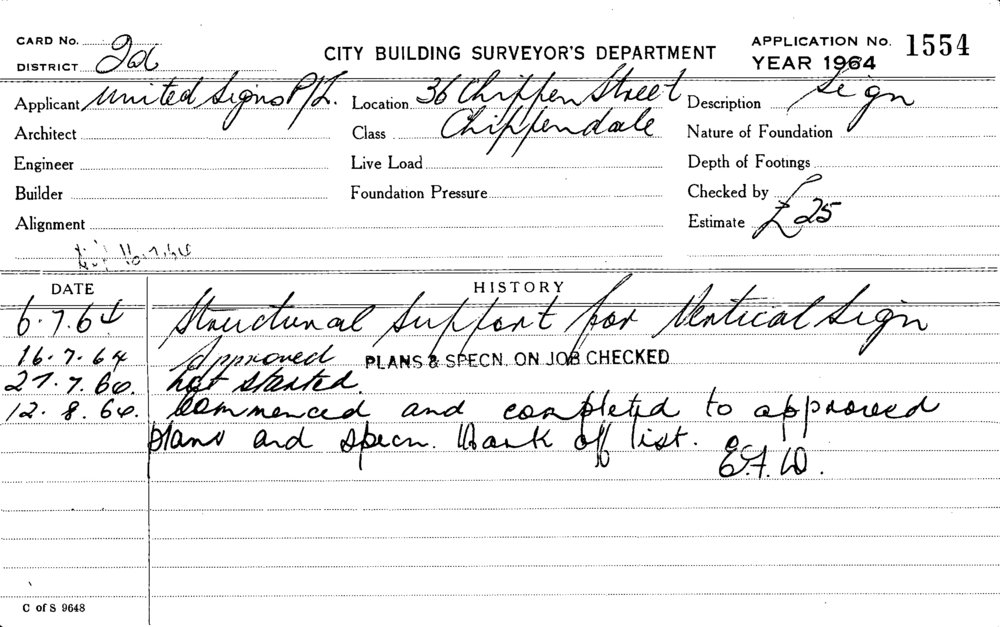 CARD No.
DISTRICT
CITY BUILDING SURVEYOR'S DEPARTMENT
APPLICATION No. 1554
YEAR 1964
Applicant United Signs P/L. Location 36 Chippen Street Description Sign
Architect Class Chippendale Nature of Foundation
Engineer Live Load Depth of Footings
Builder Foundation Pressure Checked by
Alignment Estimate £25
16.7.64
DATE HISTORY
6.7.64 Structural Support for Vertical Sign
16.7.64 Approved PLANS & SPECN. ON JOB CHECKED
27.7.64. Not started.
12.8.64. Commenced and completed to approved
plans and specn. Mark off list.
E.F.W.
C of S 9648